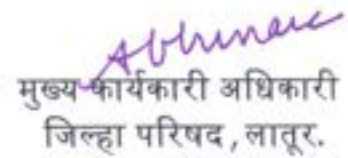 Abhinav
मुख्य कार्यकारी अधिकारी
जिल्हा परिषद ,लातूर.